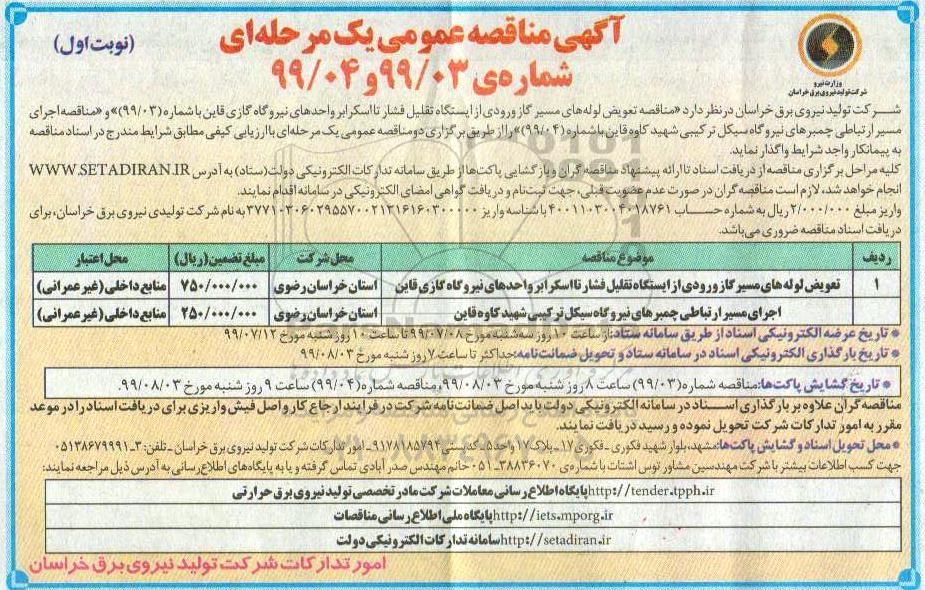 آگهی مناقصه عمومی یک مرحله‌ای
(نوبت اول)
شماره‌ی ۹۹/۰۳ و ۹۹/۰۴
وزارت نیرو
شرکت تولید نیروی برق خراسان
شرکت تولید نیروی برق خراسان در نظر دارد «مناقصه تعویض لوله‌های مسیر گاز ورودی از ایستگاه تقلیل فشار تا اسکرابر واحدهای نیروگاه گازی قاین با شماره (۹۹/۰۳)» و «مناقصه اجرای
مسیر ارتباطی چمبرهای نیروگاه سیکل ترکیبی شهید کاوه قاین با شماره (۹۹/۰۴)» را از طریق برگزاری دو مناقصه عمومی یک مرحله‌ای با ارزیابی کیفی مطابق شرایط مندرج در اسناد مناقصه
به پیمانکار واجد شرایط واگذار نماید.
کلیه مراحل برگزاری مناقصه از دریافت اسناد تا ارائه پیشنهاد مناقصه گران و بازگشایی پاکت‌ها از طریق سامانه تدارکات الکترونیکی دولت (ستاد) به آدرس WWW.SETADIRAN.IR
انجام خواهد شد، لازم است مناقصه گران در صورت عدم عضویت قبلی، جهت ثبت‌نام و دریافت گواهی امضای الکترونیکی در سامانه اقدام نمایند.
واریز مبلغ ۲/۰۰۰/۰۰۰ ریال به شماره حساب ۴۰۰۱۱۰۳۰۰۴۰۱۸۷۶۱ با شناسه واریز به نام شرکت تولیدی نیروی برق خراسان، برای
دریافت اسناد مناقصه ضروری می‌باشد.
ردیف موضوع مناقصه محل شرکت مبلغ تضمین (ریال) محل اعتبار
۱ تعویض لوله های مسیر گاز ورودی از ایستگاه تقلیل فشار تا اسکرابر واحدهای نیروگاه گازی قاین استان خراسان رضوی ۷۵۰/۰۰۰/۰۰۰ منابع داخلی (غیر عمرانی)
اجرای مسیر ارتباطی چمبرهای نیروگاه سیکل ترکیبی شهید کاوه قاین استان خراسان رضوی ۲۵۰/۰۰۰/۰۰۰ منابع داخلی (غیر عمرانی)
* تاریخ عرضه الکترونیکی اسناد از طریق سامانه ستاد: از ساعت ۱۰ روز سه شنبه مورخ ۹۹/۰۷/۰۸ تا ساعت ۱۰ روز شنبه مورخ ۹۹/۰۷/۱۲
* تاریخ بارگذاری الکترونیکی اسناد در سامانه ستاد و تحویل ضمانت‌نامه: حداکثر تا ساعت ۷ روز شنبه مورخ ۹۹/۰۸/۰۳
* تاریخ گشایش پاکت‌ها: مناقصه شماره (۹۹/۰۳) ساعت ۸ روز شنبه مورخ ۹۹/۰۸/۰۳ و مناقصه شماره (۹۹/۰۴) ساعت ۹ روز شنبه مورخ ۹۹/۰۸/۰۳.
مناقصه گران علاوه بر بارگذاری اسناد در سامانه الکترونیکی دولت باید اصل ضمانت‌نامه شرکت در فرایند ارجاع کار و اصل فیش واریزی برای دریافت اسناد را در موعد
مقرر به امور تدارکات شرکت تحویل نموده و رسید دریافت نمایند.
* محل تحویل اسناد و گشایش پاکت‌ها: مشهد، بلوار شهید فکوری - فکوری ۱۷ - پلاک ۱۷ واحد ۵ - کدپستی ۹۱۷۷۸۸۵۷۹۳ - امور تدارکات شرکت تولید نیروی برق خراسان - تلفن: ۳ - ۰۵۱۳۸۶۷۹۹۹۱
جهت کسب اطلاعات بیشتر با شرکت مهندسین مشاور توس اشتات با شماره‌ی ۳۸۸۳۶۰۷۰ - ۰۵۱ خانم مهندس صدرآبادی تماس گرفته و یا به پایگاه‌های اطلاع رسانی به آدرس ذیل مراجعه نمایند:
http://tender.tpph.ir پایگاه اطلاع رسانی معاملات شرکت مادر تخصصی تولید نیروی برق حرارتی
http://iets.mporg.ir پایگاه ملی اطلاع رسانی مناقصات
http://setadiran.ir سامانه تدارکات الکترونیکی دولت
امور تدارکات شرکت تولید نیروی برق خراسان